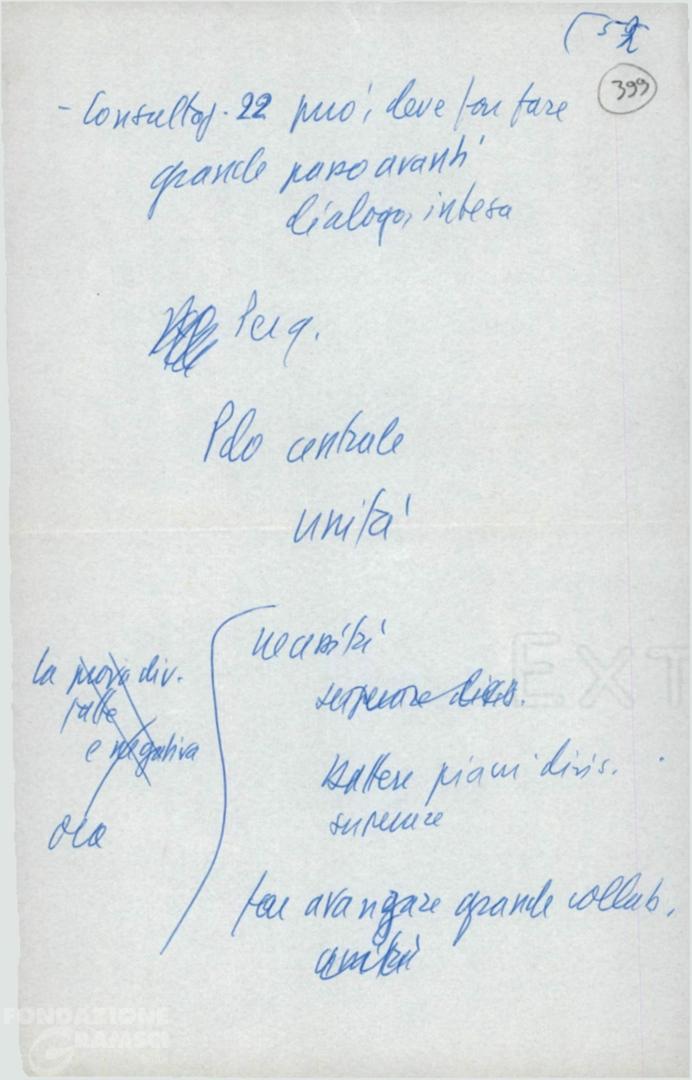 (52
399
- Consultaz. 22 può, deve far fare
grande passo avanti
dialogo, intesa
Perq.
Polo centrale
unità
la prova div.
fatta
e negativa
ora
necessità
superare divis.
battere piani divis.
superare
far avanzare grande collab.
unità
EXT
FONDAZIONE
GRAMSCI